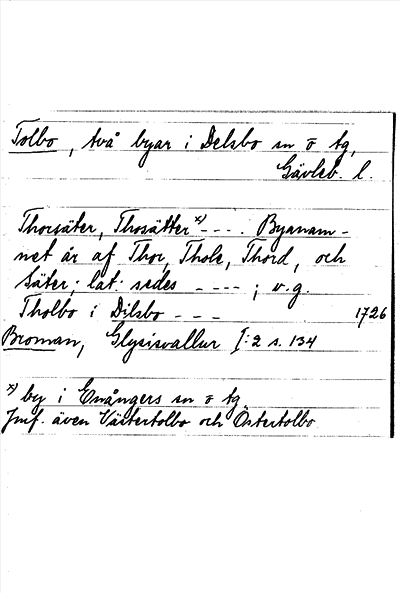 Tolbo, två byar i Delsbo sn o tg,
Gävleb. l.
Thorsäter, Thosätter x) - - - . Byanam-
net är af Thor, Thole, Thord, och
Säter; lat: sedes - - - - ; v.g.
Tholbo i Dilsbo - - - 1726
Broman, Glysisvallur I:2 s. 134
x) by i Enångers sn o tg.
Jmf. även Västertolbo och Östertolbo